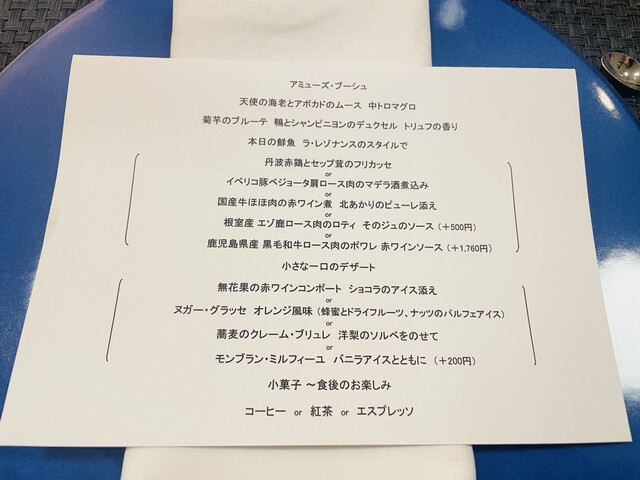 アミューズ・ブーシュ
天使の海老とアボカドのムース 中トロマグロ
菊芋のブルーテ 鴨とシャンピニヨンのデュクセル トリュフの香り
本日の鮮魚 ラ・レゾナンスのスタイルで
丹波赤鶏とセップ茸のフリカッセ
or
イベリコ豚ベジョータ肩ロース肉のマデラ酒煮込み
or
国産牛ほほ肉の赤ワイン煮 北あかりのピューレ添え
or
根室産 エゾ鹿ロース肉のロティ そのジュのソース (+500円)
or
鹿児島県産 黒毛和牛ロース肉のポワレ 赤ワインソース (+1,760円)
小さな一口のデザート
無花果の赤ワインコンポート ショコラのアイス添え
or
ヌガー・グラッセ オレンジ風味 (蜂蜜とドライフルーツ、ナッツのパルフェアイス)
or
蕎麦のクレーム・ブリュレ 洋梨のソルベをのせて
or
モンブラン・ミルフィーユ バニラアイスとともに (+200円)
小菓子 ～食後のお楽しみ
コーヒー or 紅茶 or エスプレッソ